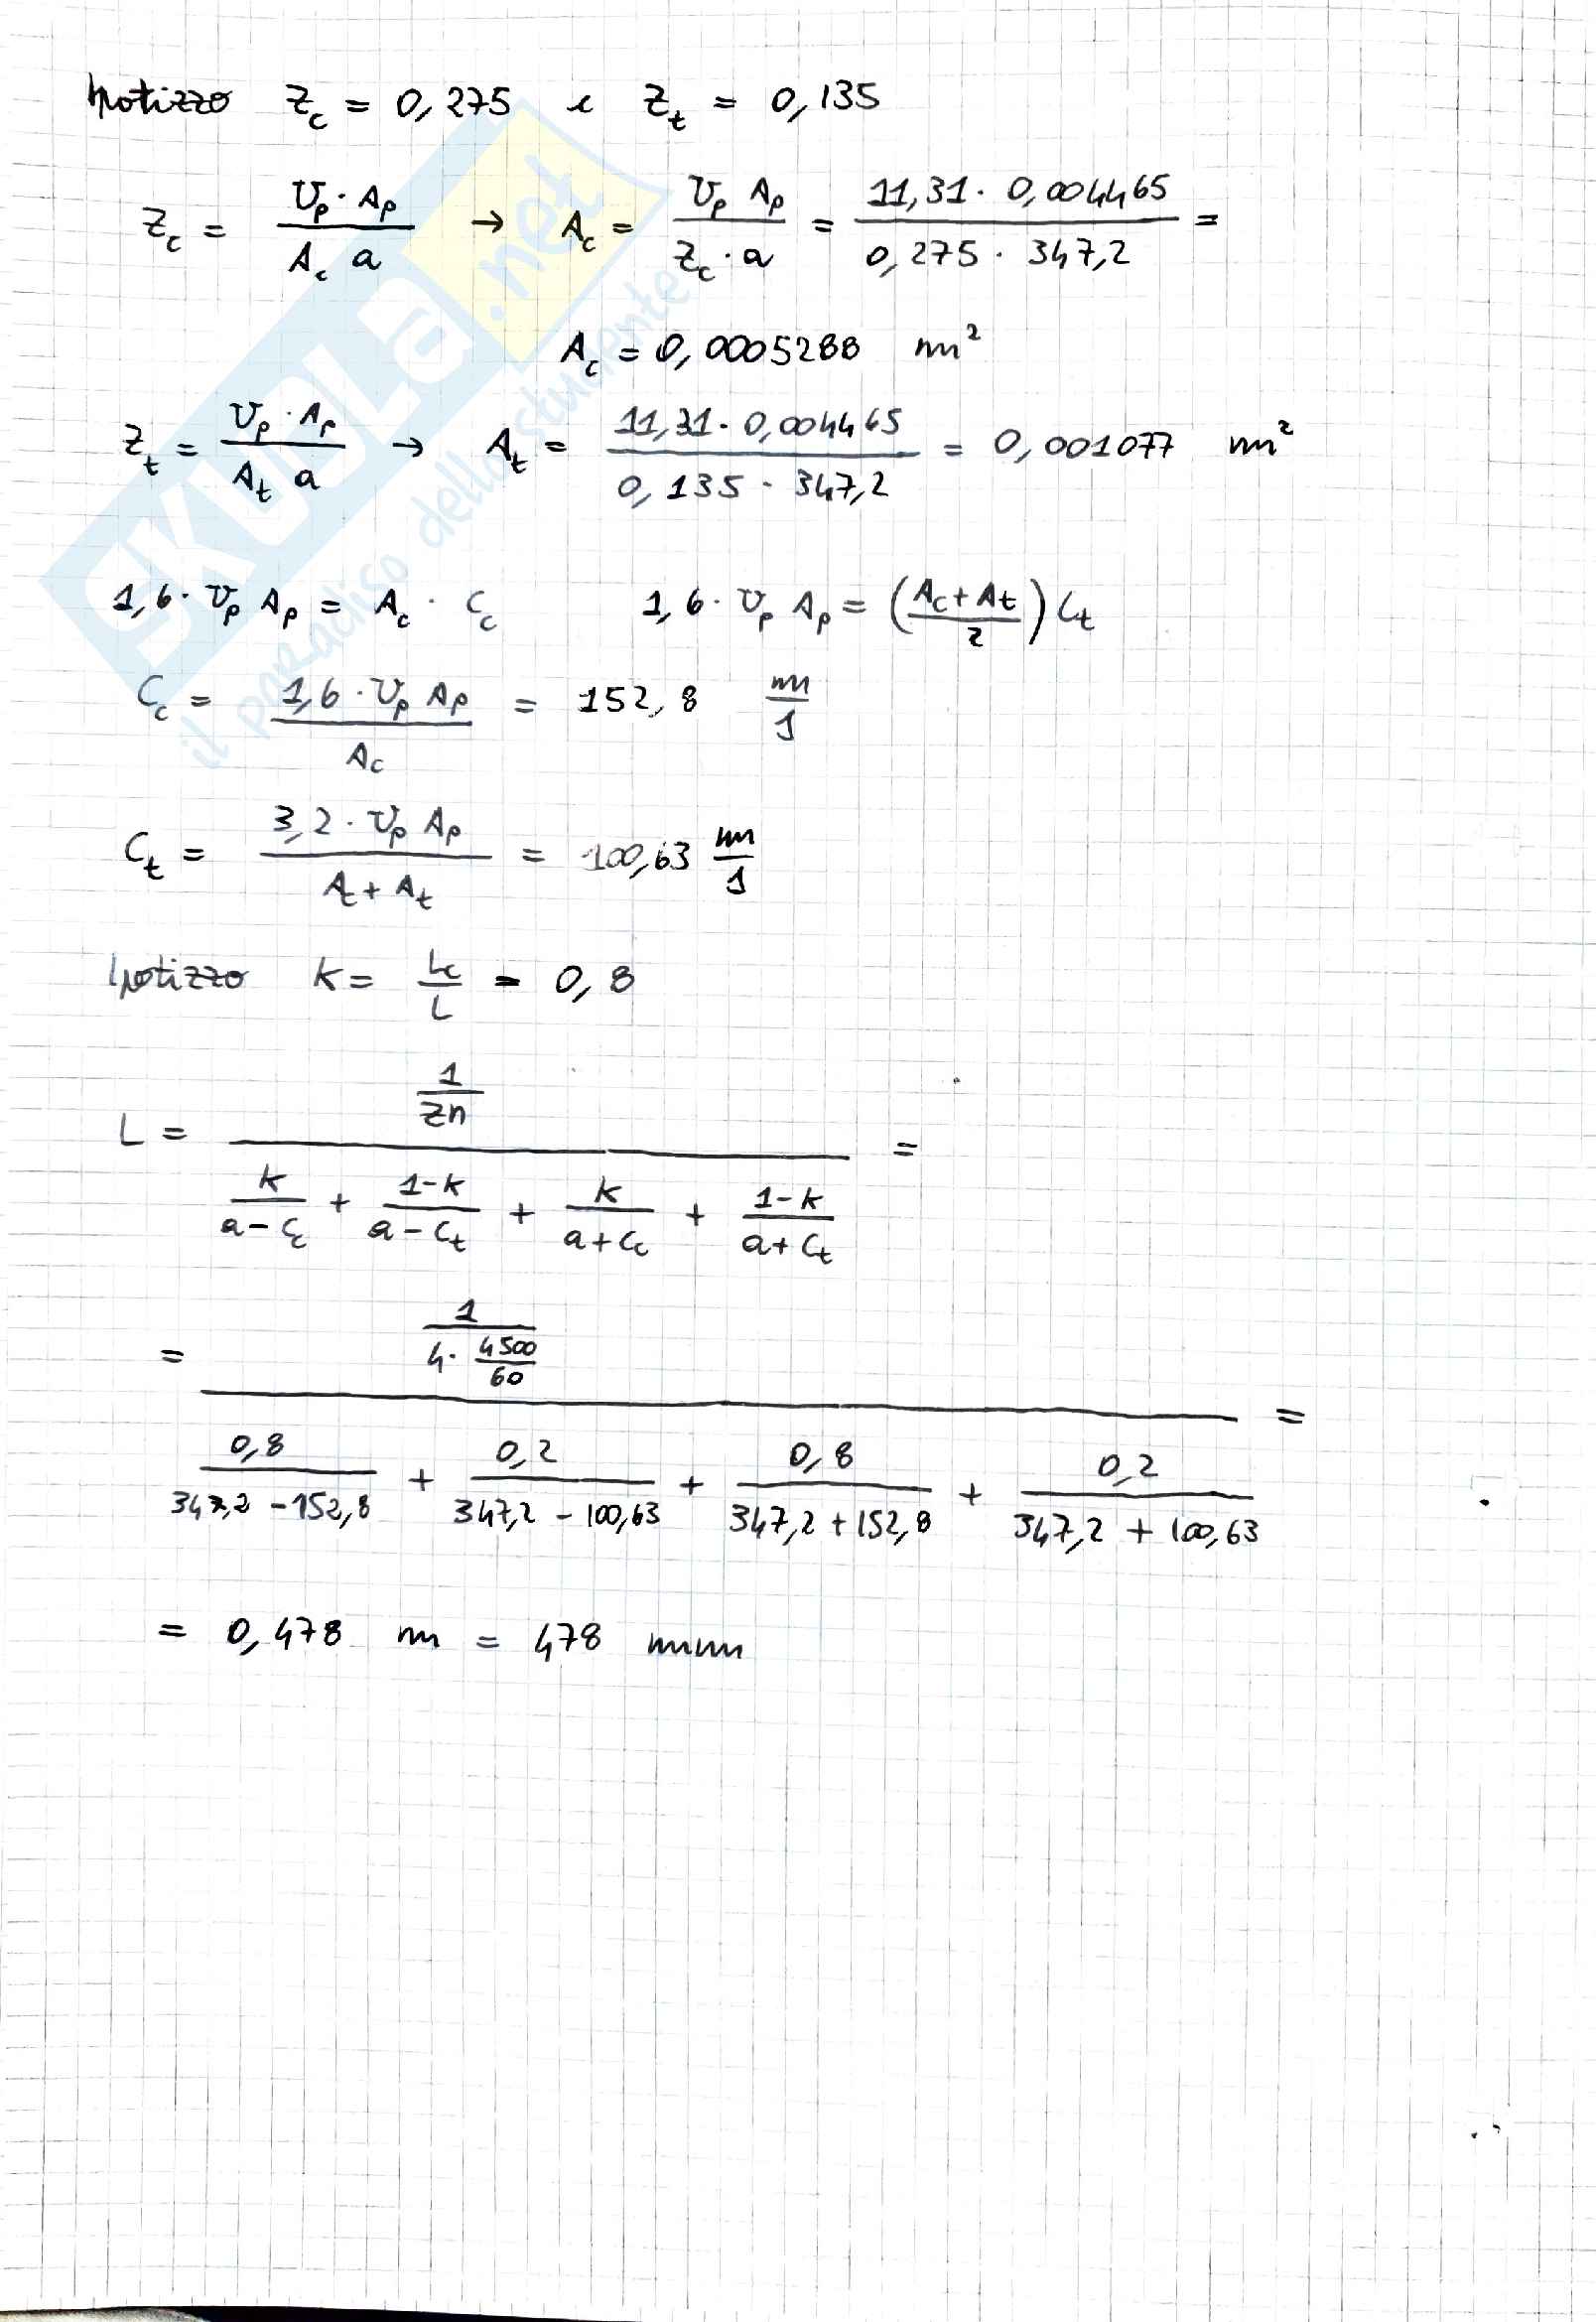 Ipotizzo Z_c = 0,275 e Z_t = 0,135
Z_c = (U_p · A_p) / (A_c a) → A_c = (U_p A_p) / (Z_c · a) = (11,31 · 0,004465) / (0,275 · 347,2) =
A_c = 0,0005288 m²
Z_t = (U_p · A_p) / (A_t a) → A_t = (11,31 · 0,004465) / (0,135 · 347,2) = 0,001077 m²
1,6 · U_p A_p = A_c · C_c 1,6 · U_p A_p = ((A_c + A_t) / 2) C_t
C_c = (1,6 · U_p A_p) / A_c = 152,8 m/s
C_t = (3,2 · U_p A_p) / (A_t + A_t) = 100,63 m/s
Ipotizzo k = L_c / L = 0,8
L = (1 / (2n)) / (k / (a - C_c) + (1-k) / (a - C_t) + k / (a + C_c) + (1-k) / (a + C_t)) =
= (1 / (4 · 4500/60)) / (0,8 / (347,2 - 152,8) + 0,2 / (347,2 - 100,63) + 0,8 / (347,2 + 152,8) + 0,2 / (347,2 + 100,63)) =
= 0,478 m = 478 mm
SKUOLA.net
il paradiso dello studente